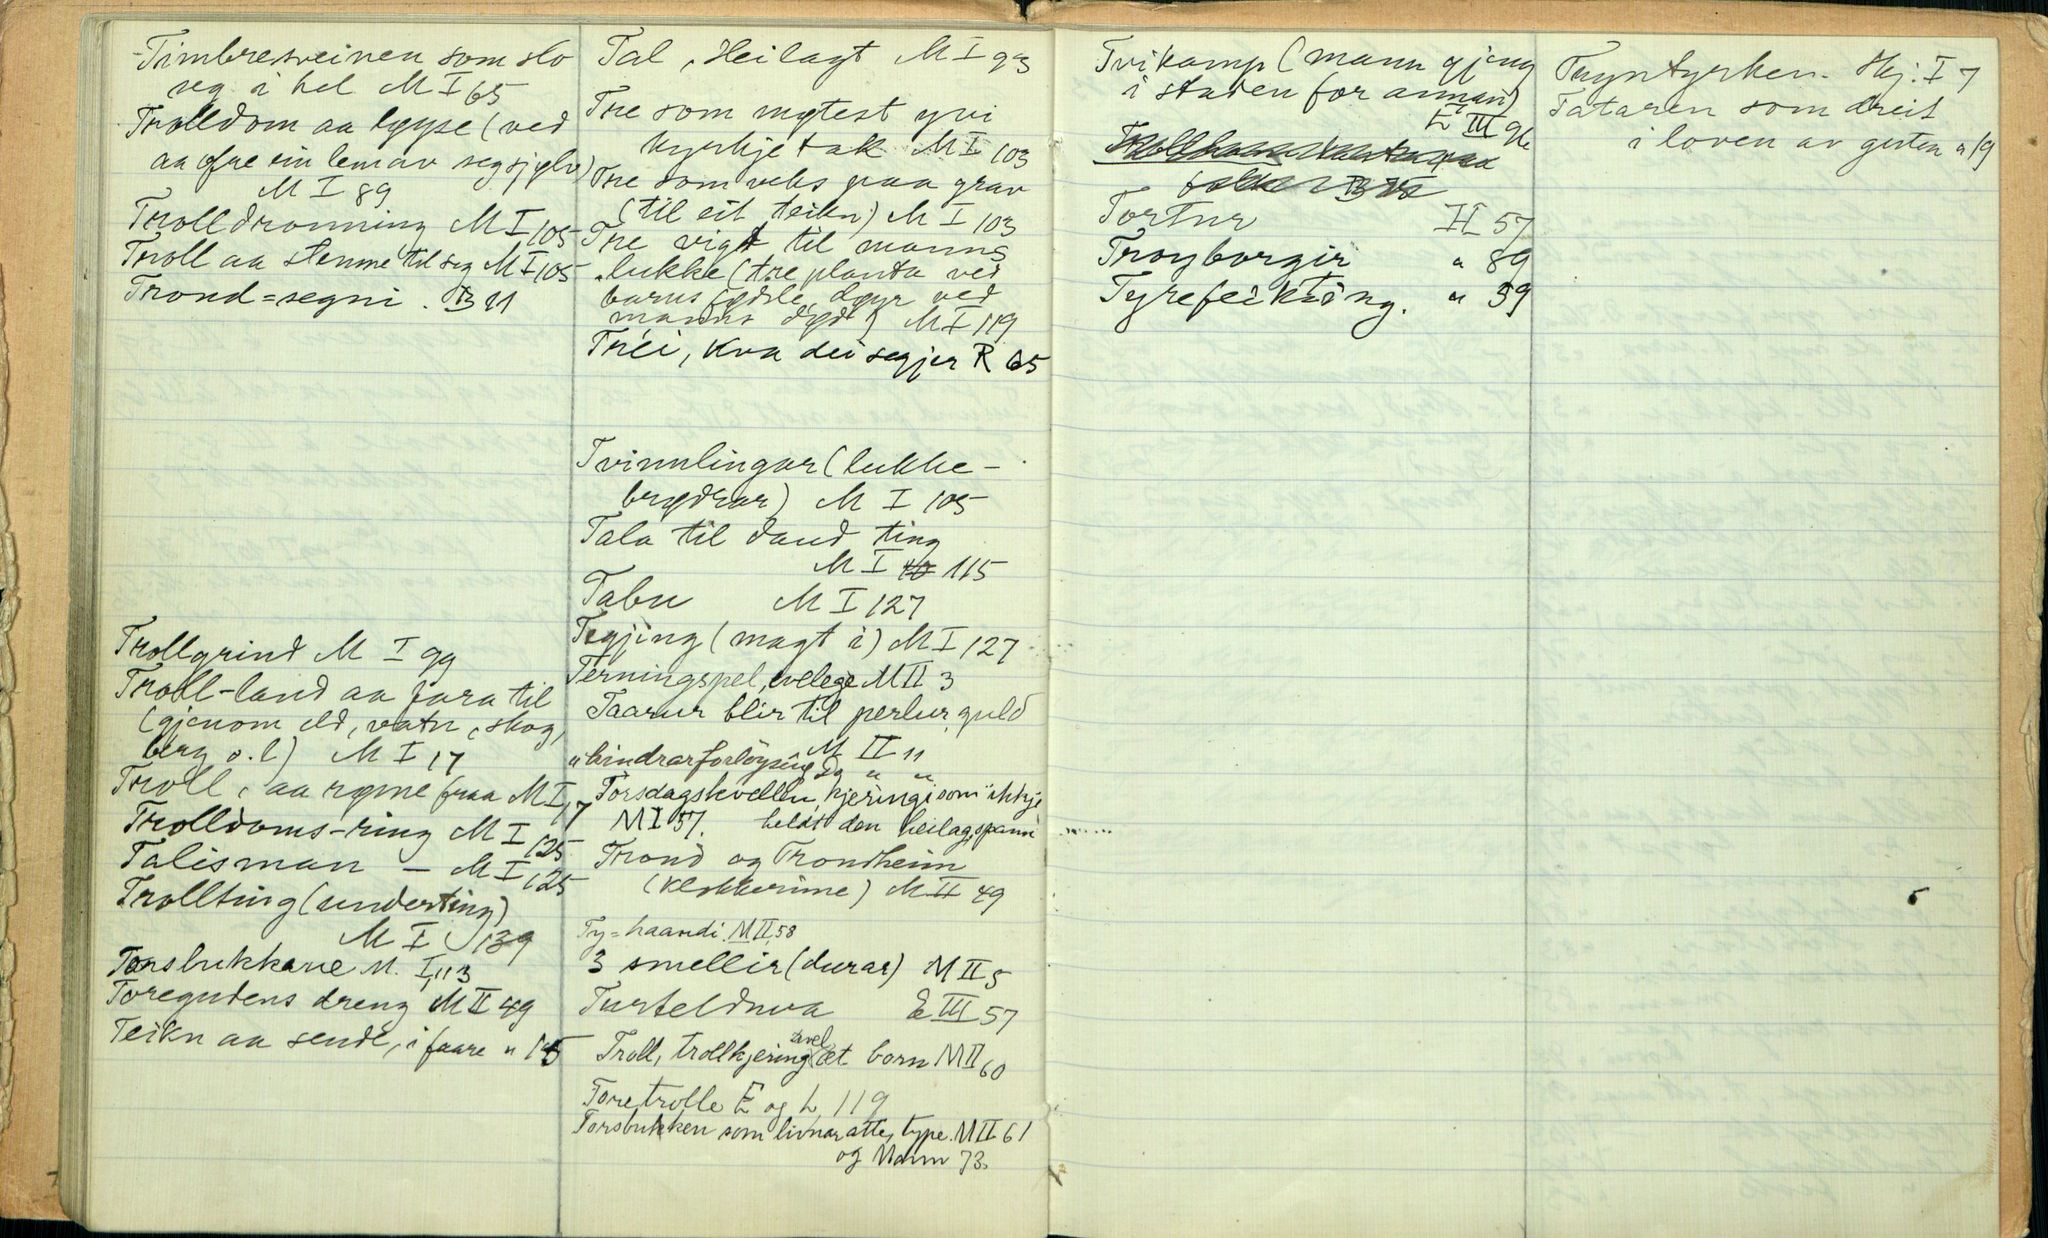 Timbresveinen som slo
seg i hel M I 65
Trolldom aa løyse (ved
aa ofre ein lem av seg sjølv)
M I 89
Trolldronning M I 105
Troll aa stemne til seg M I 105
Trond=segni. B 11
Trollgrind M I 99
Troll-land aa fara til
(gjenom eld, vatn, skog,
berg o.l) M I 17
Troll, aa røme fraa M I, 17
Trolldoms-ring M I 125
Talisman — M I 125
Trollting (underting)
M I 139
Torsbukkane M. I, 113
Toregudens dreng M II 49
Teikn aa sende, i faare " 145
Tal, Heilagt M I 93
Tre som møtest yvi
kyrkjetak M I 103
Tre som veks paa grav
(til eit teikn) M I 103
Tre vigt til manns
lukke (tre planta ved
barns fødsle, døyr ved
manns død) M I 119
Trei, kva dei segjer R 65
Tvinnlingar (lukke-
brødrar) M I 105
Tala til daud ting
M I 115
Tabu M I 127
Tegjing (magt i) M I 127
Terningspel, evelege M II 3
Taarur blir til perlur, guld
M II 11
" hindrar forløysing og " "
Torsdagskvellen, kjeringi som ikkje
M I 57. heldt den heilag, spann
Trond og Trondheim
(Klokkerime) M II 49
Ty=haandi. M II, 58
3 smellir (durar) M II 5
Turteldua E III 57
Troll, trollkjering avel, æt born M II 60
Foretrolle E og L, 119
Torsbukken som livnar atte, type. M II 61
og Mann 73.
Tvikamp (mann gjeng
i staden for annan)
E III 96
Tortur II 57
Troyborgir " 89
Tyrefeikting. " 59
Tuyntyrken. Hj. I 7
Tataren som dreit
i loven av gusten " 19